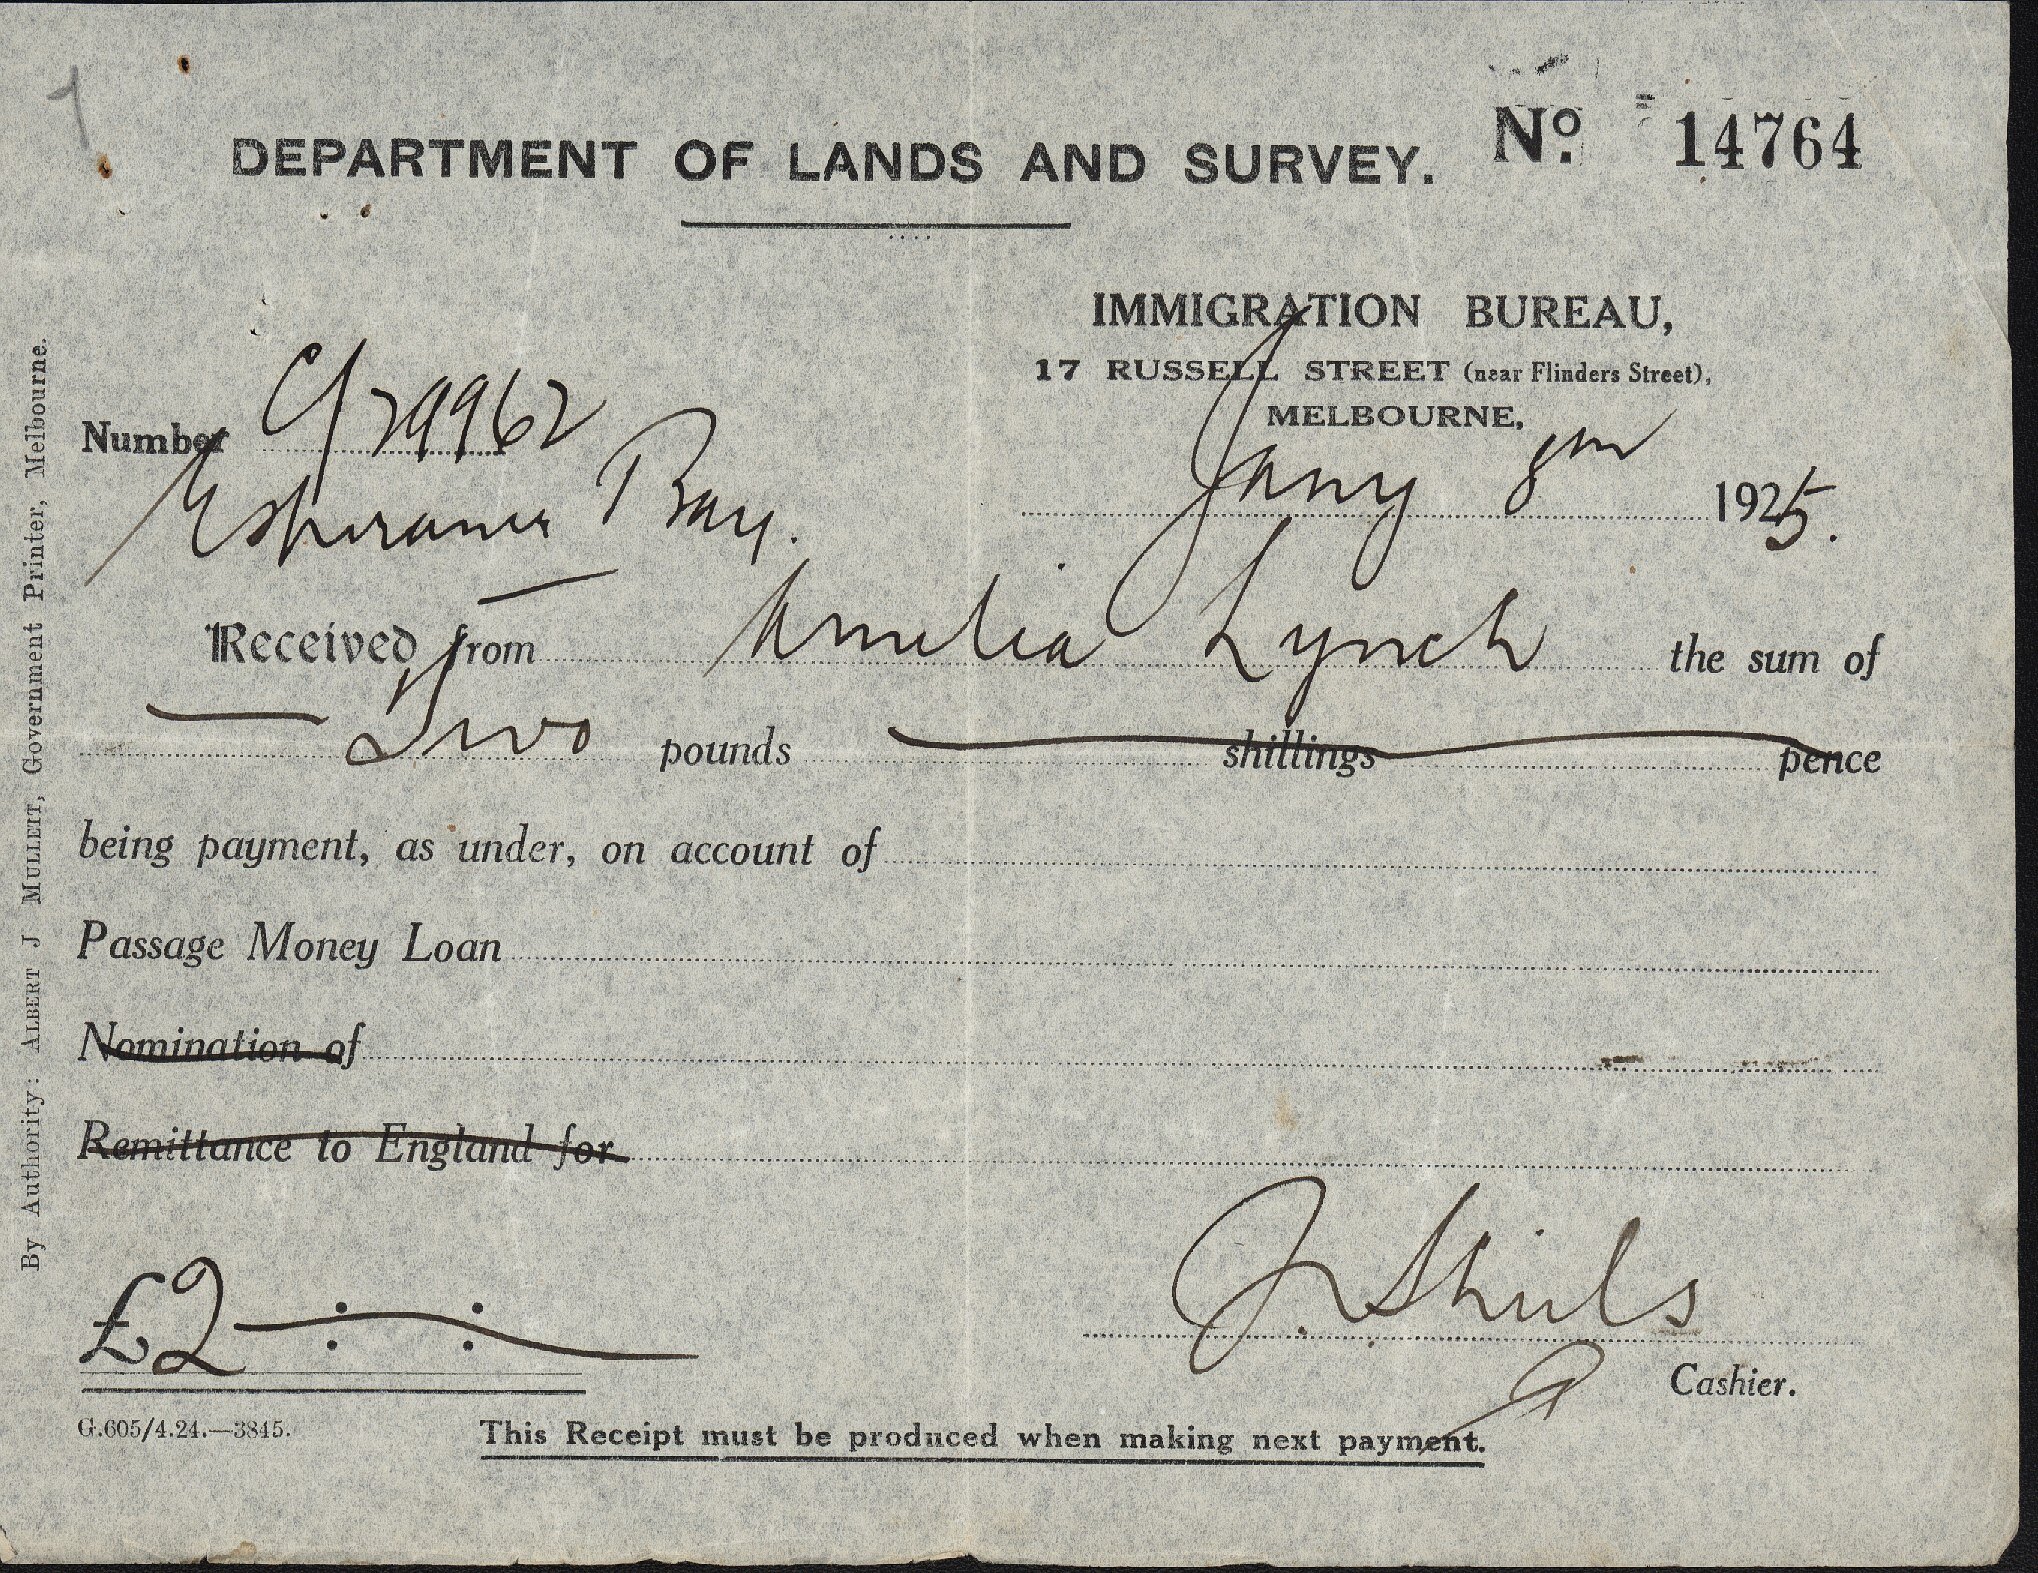 DEPARTMENT OF LANDS AND SURVEY.
No. 14764
IMMIGRATION BUREAU,
17 RUSSELL STREET (near Flinders Street),
MELBOURNE,
Number C/29962
Esperance Bay.
Jany 8th 1925.
Received from Amelia Lynch the sum of
Two pounds shillings pence
being payment, as under, on account of
Passage Money Loan
Nomination of
Remittance to England for
£2
J. Shiels
Cashier.
G.605/4.24.—3845.
This Receipt must be produced when making next payment.
By Authority: ALBERT J MULLETT, Government Printer, Melbourne.